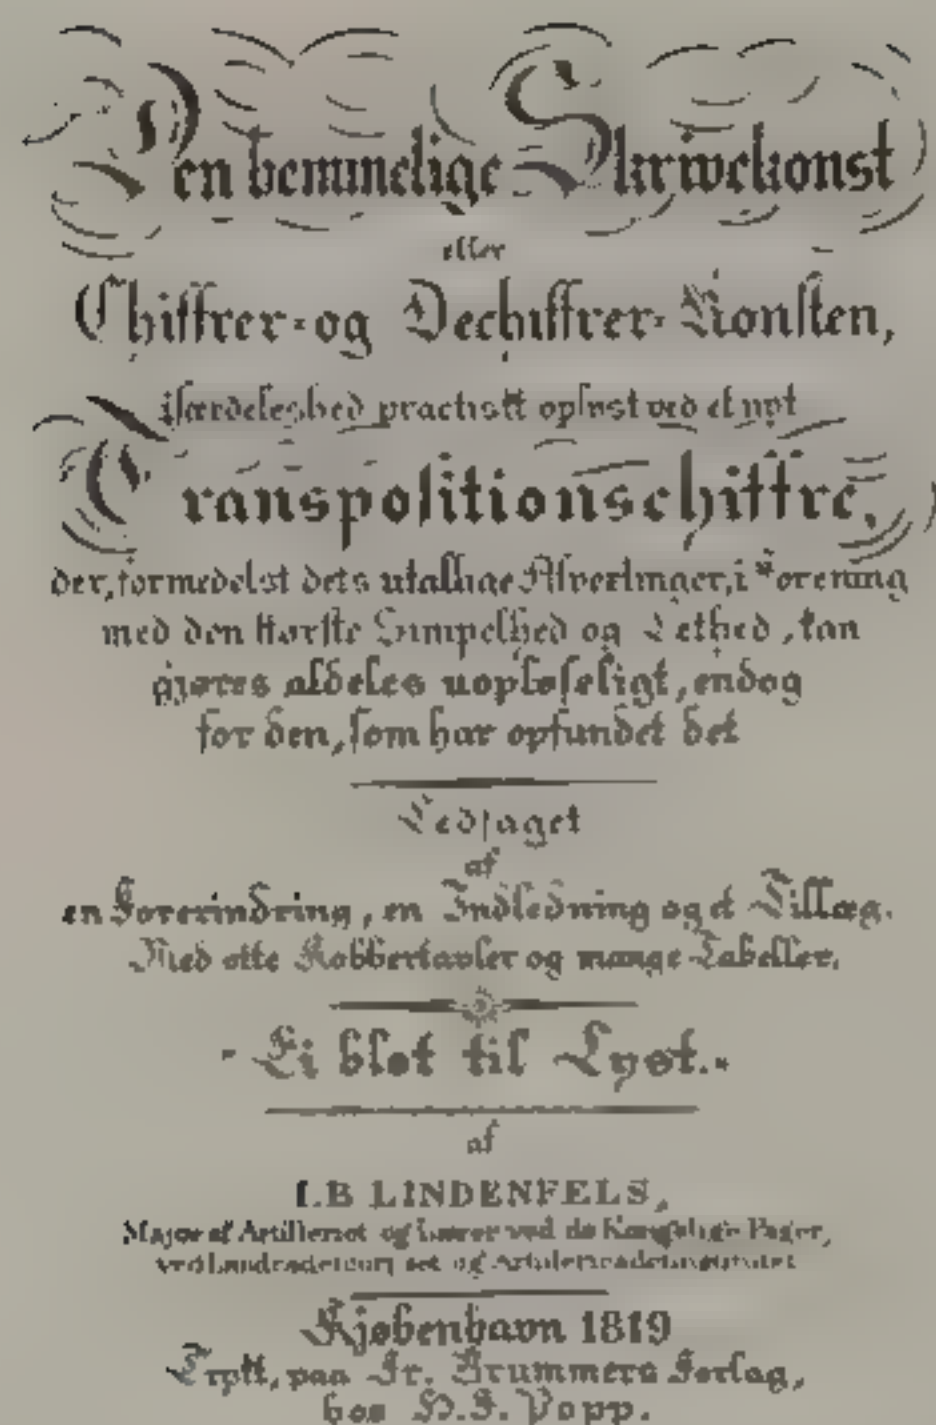 Den hemmelige Skrivekonst
eller
Chiffrer- og Dechiffrer-Konsten,
især­deleshed practiskt oplyst ved et nyt
Transpositionschiffre,
der, formedelst dets utallige Afvexlinger, i Forening
med den største Simpelhed og Lethed, kan
gjøres aldeles uopløseligt, endog
for den, som har opfundet det
Ledsaget
af
en Forerindring, en Indledning og et Tillæg.
Med otte Kobbertavler og mange Tabeller.
"Ei blot til Lyst."
af
I.B LINDENFELS,
Major af Artilleriet og Lærer ved de Kongelige Pager,
ved og
Kjøbenhavn 1819
Trykt, paa Fr. Brummers Forlag,
hos H.F. Popp.